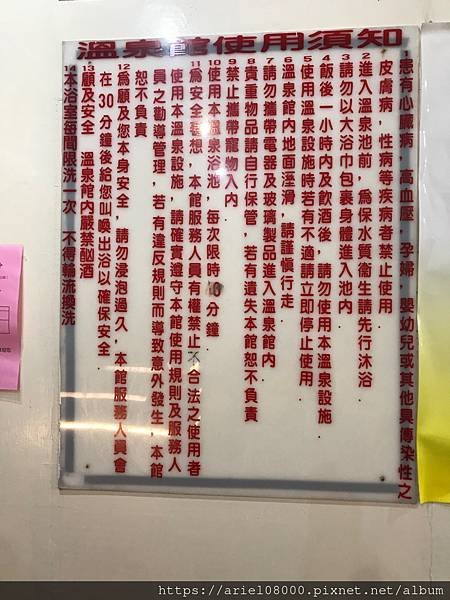 溫泉館使用須知
1患有心臟病，高血壓，孕婦，嬰幼兒或其他具傳染性之
皮膚病，性病等疾病者禁止使用．
2進入溫泉池前，為保水質衛生請先行沐浴．
3請勿以大浴巾包裹身體進入池內．
4飯後一小時內及飲酒後，請勿使用本溫泉設施．
5使用溫泉設施時若有不適請立即停止使用．
6溫泉館內地面溼滑，請謹慎行走．
7請勿攜帶電器及玻璃製品進入溫泉館內．
8貴重物品請自行保管，若有遺失本館恕不負責
9禁止攜帶寵物入內．
10使用本溫泉浴池，每次限時40分鐘．
11為安全著想，本館服務人員有權禁止不合法之使用者
使用本溫泉設施，請確實遵守本館使用規則及服務人
員之勸導管理，若有違反規則而導致意外發生，本館
恕不負責
12為顧及您本身安全，請勿浸泡過久，本館服務人員會
在30分鐘後給您叫喚出浴以確保安全．
13顧及安全 溫泉館內嚴禁酗酒
14本浴室每間限洗一次 不得輪流換洗
https://ariel08000.pixnet.net/album